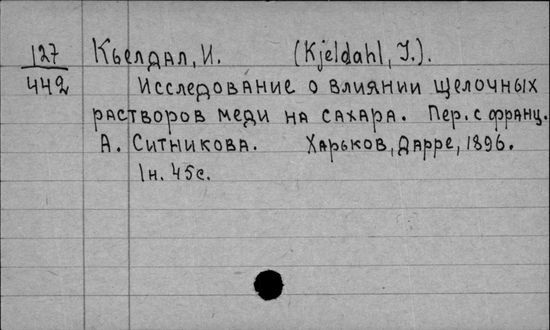 127 Кьелдал, И. (Kjeldahl, J.).
442 Исследование о влиянии щелочных
растворов меди на сахара. Пер. с франц.
А. Ситникова. Харьков, Дарре, 1896.
1н. 45с.